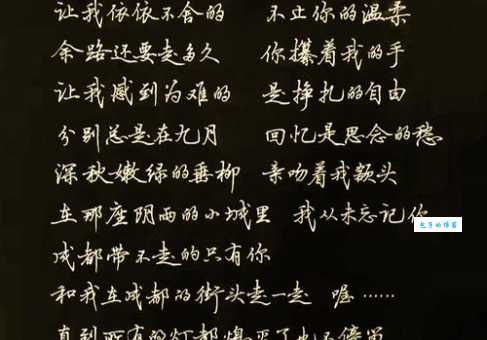 让我依依不舍的 不止你的温柔
余路还要走多久 你攥着我的手
让我感到为难的 是挣扎的自由
分别总是在九月 回忆是思念的愁
深秋嫩绿的垂柳 亲吻着我额头
在那座阴雨的小城里 我从未忘记你
成都带不走的只有你
和我在成都的街头走一走 喔……
直到所有的灯都熄灭了也不停留